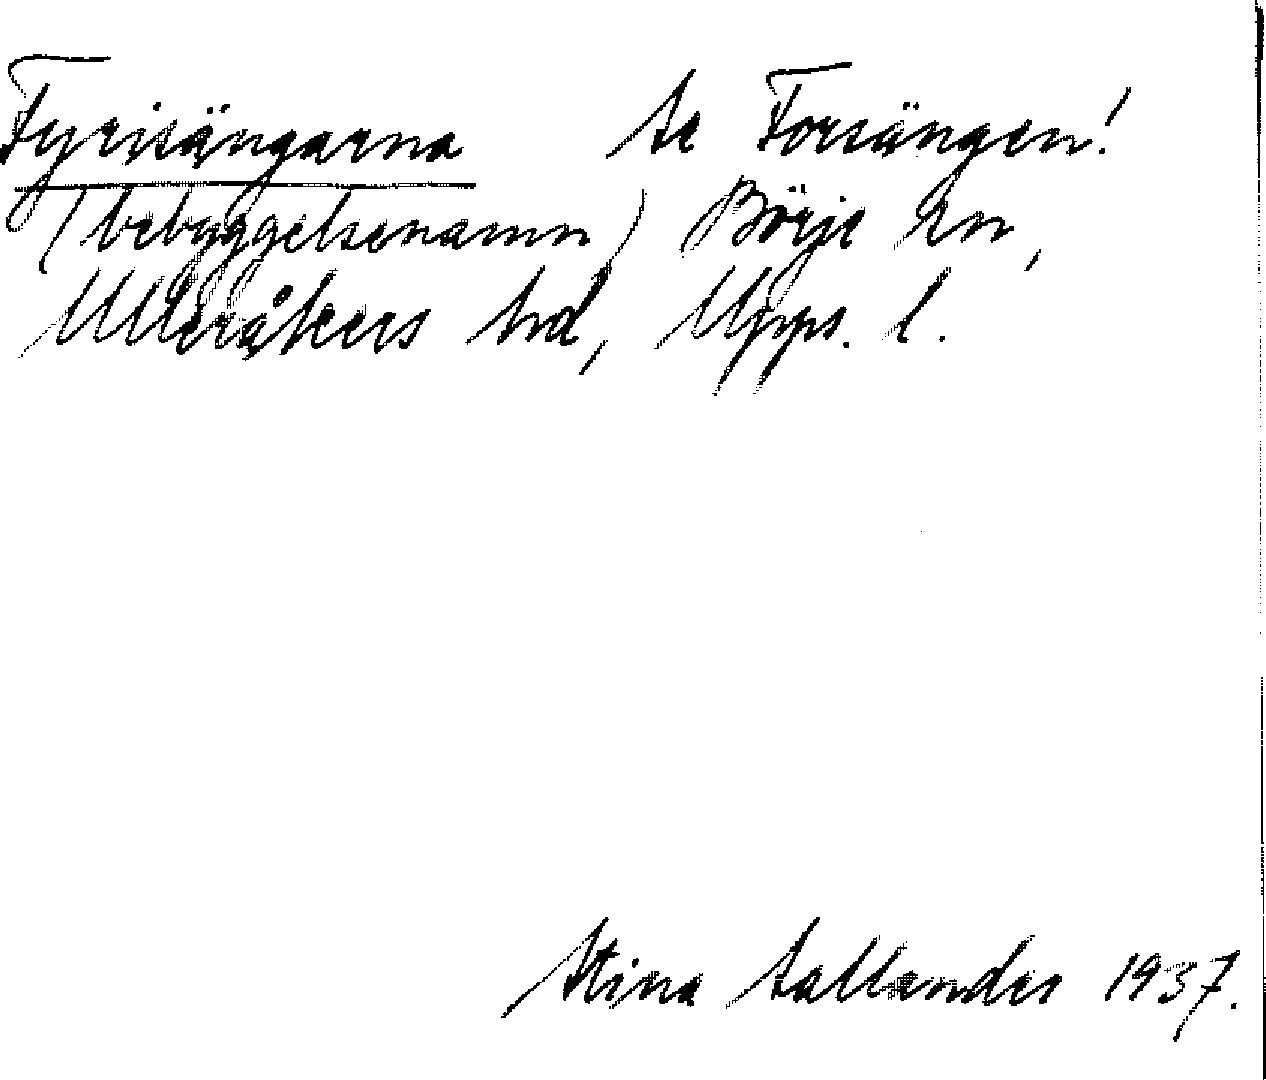 Fyrisängarna Se Forsängen!
(bebyggelsenamn) Börje sn,
Ulleråkers hd, Upps. l.
Stina Sallander 1937.